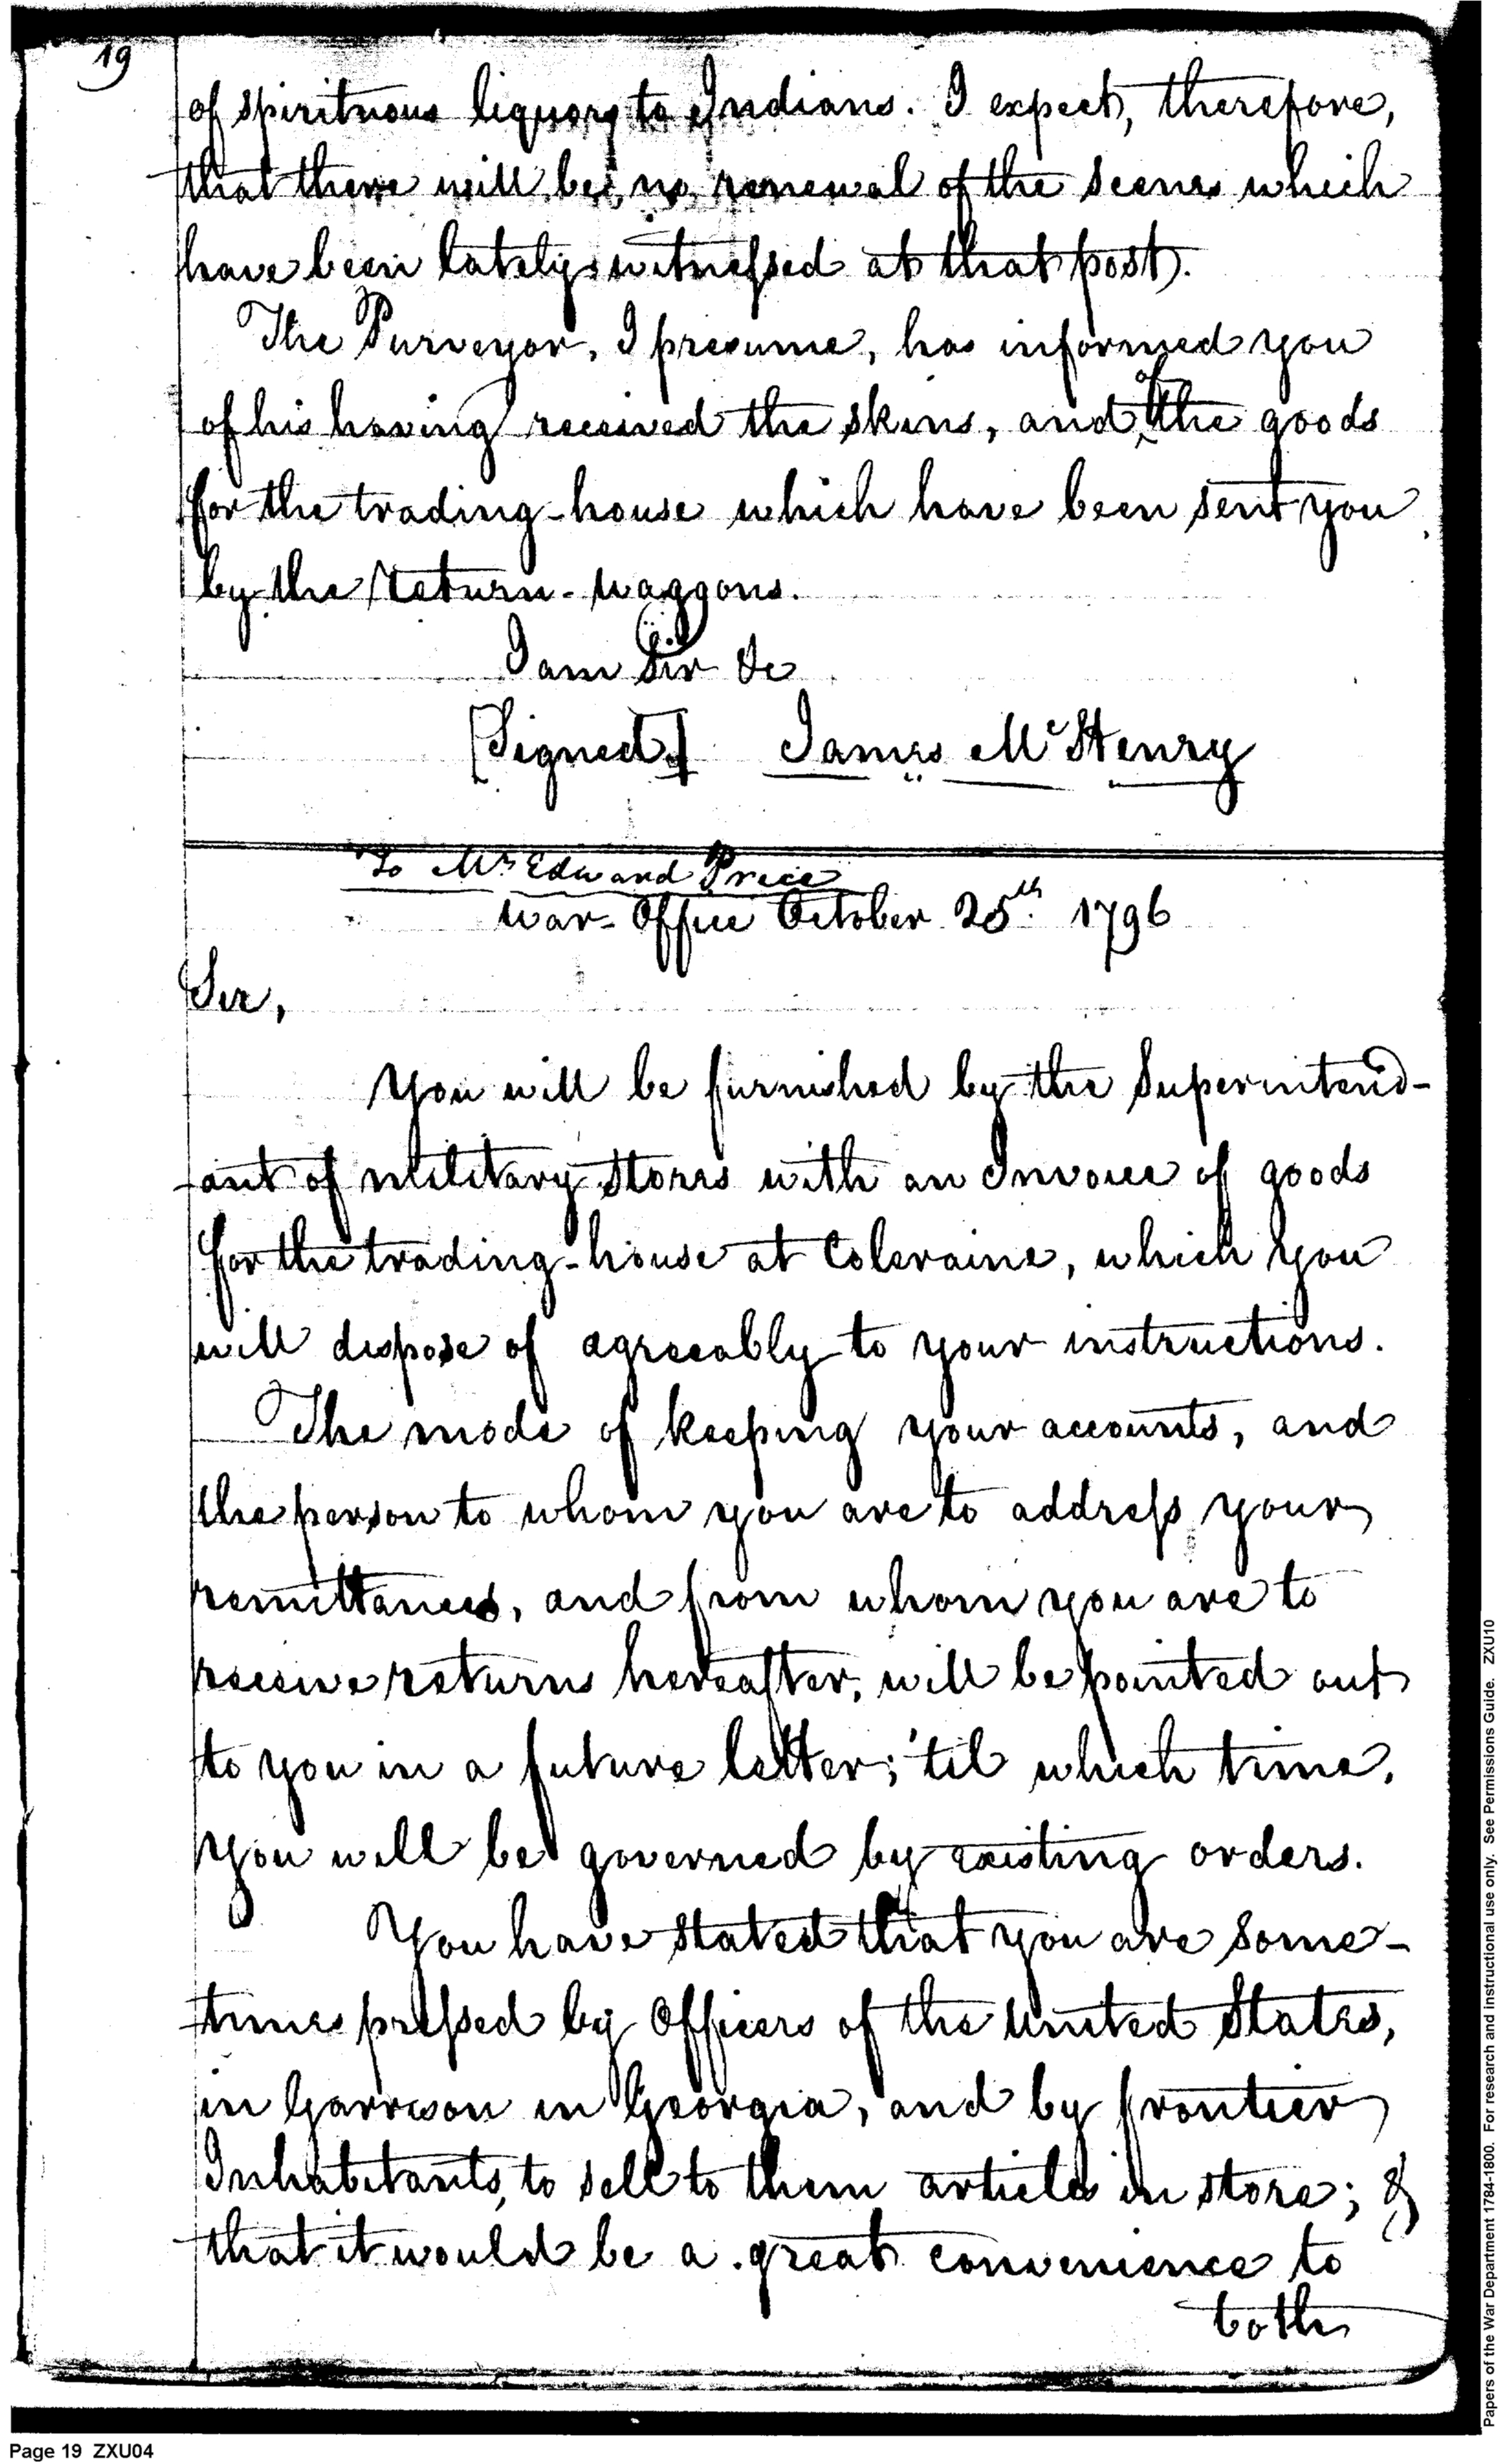 19
of spirituous liquors to Indians. I expect, therefore,
that there will be, no renewal of the scenes which
have been lately witnessed at that post.
The Purveyor, I presume, has informed you
of his having received the skins, and of the goods
for the trading-house which have been sent you
by the return-waggons.
I am Sir &c
[Signed] James McHenry
To Mr Edward Price
War-Office October 25th 1796
Sir,
You will be furnished by the Superintend-
ant of military stores with an Invoice of goods
for the trading-house at Coleraine, which you
will dispose of agreeably to your instructions.
The mode of keeping your accounts, and
the person to whom you are to address your
remittances, and from whom you are to
receive returns hereafter, will be pointed out
to you in a future letter; 'til which time,
you will be governed by existing orders.
You have stated that you are some-
times pressed by Officers of the United States,
in Garrison in Georgia, and by frontier
Inhabitants, to sell to them articles in store; &
that it would be a great convenience to
both
Page 19 ZXU04
Papers of the War Department 1784-1800. For research and instructional use only. See Permissions Guide. ZXU10